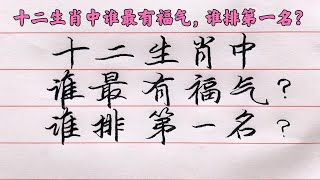 十二生肖中谁最有福气，谁排第一名？
十二生肖中
谁最有福气？
谁排第一名？